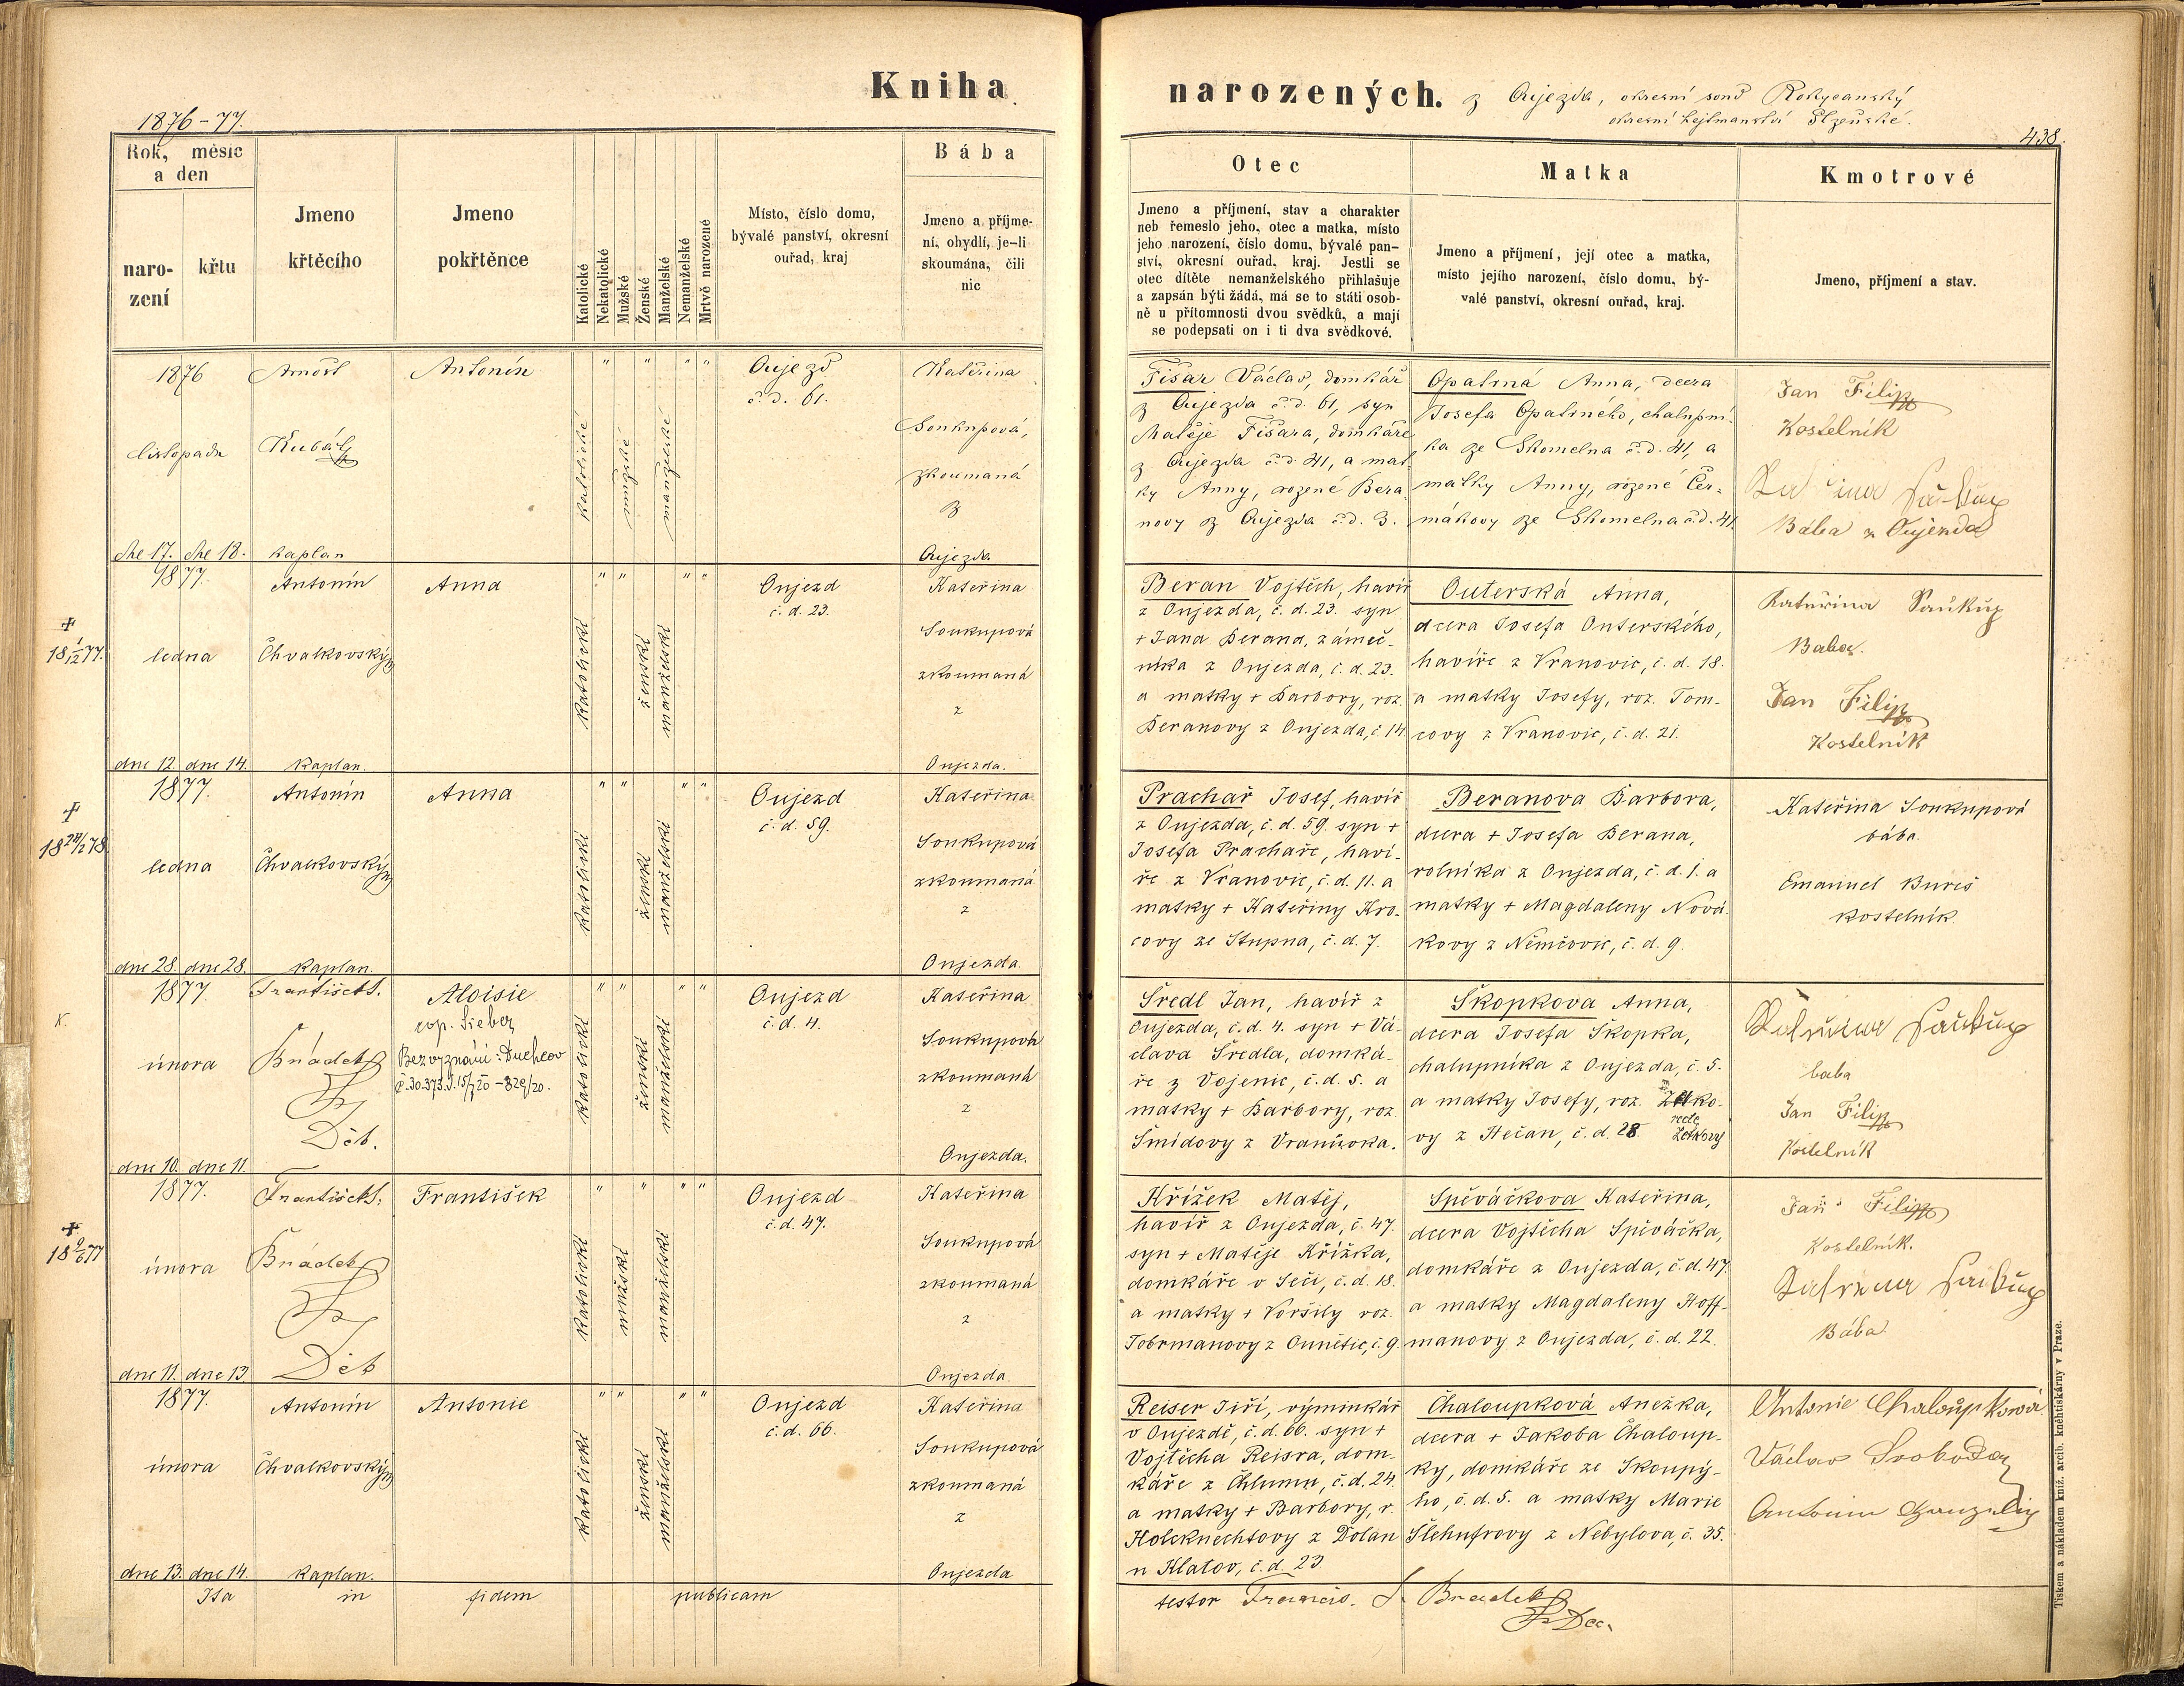 Kniha
narozených. z Oujezda, okresní soud Rokycanský
okresní hejtmanství Plzeňské.
1876-77.
438.
Rok, měsíc
a den
naro-
zení
křtu
Jmeno
křtěcího
Jmeno
pokřtěnce
Katolické
Nekatolické
Mužské
Ženské
Manželské
Nemanželské
Mrtvě narozené
Místo, číslo domu,
bývalé panství, okresní
ouřad, kraj
Bába
Jmeno a příjme-
ní, obydlí, je-li
skoumána, čili
nic
Otec
Jmeno a příjmení, stav a charakter
neb řemeslo jeho, otec a matka, místo
jeho narození, číslo domu, bývalé pan-
ství, okresní ouřad, kraj. Jestli se
otec dítěte nemanželského přihlašuje
a zapsán býti žádá, má se to státi osob-
ně u přítomnosti dvou svědků, a mají
se podepsati on i ti dva svědkové.
Matka
Jmeno a příjmení, její otec a matka,
místo jejího narození, číslo domu, bý-
valé panství, okresní ouřad, kraj.
Kmotrové
Jmeno, příjmení a stav.
1876
listopadu
dne 17. dne 18.
Arnošt
kaplan
Antonín
katolické
mužské
manželské
Oujezd
č. d. 61.
Kateřina
Soukupová,
zkoumaná
z
Oujezda
Fišar Václav, domkář
z Oujezda č. d. 61, syn
Matěje Fišara, domkáře
z Oujezda č. d. 41, a mat-
ky Anny, rozené Bera-
novy z Oujezda č. d. 3.
Opatrná Anna, dcera
Josefa Opatrného, chalupní-
ka ze Skomelna č. d. 41, a
matky Anny, rozené Čer-
mákovy ze Skomelna č. d. 41.
Jan Filip
Kostelník
Bába z Oujezda
1877.
ledna
dne 12. dne 14.
+
18 1/12 77.
Antonín
Chvalkovský
kaplan.
Anna
katolické
ženské
manželské
Oujezd
č. d. 23.
Kateřina
Soukupová
zkoumaná
z
Oujezda.
Beran Vojtěch, havíř
z Oujezda, č. d. 23. syn
+ Jana Berana, zámeč-
níka z Oujezda, č. d. 23.
a matky + Barbory, roz.
Beranovy z Oujezda, č. 14.
Outerská Anna,
dcera Josefa Outerského,
havíře z Vranovic, č. d. 18.
a matky Josefy, roz. Tom-
covy z Vranovic, č. d. 21.
Kateřina Saukup
Baba.
Jan Filip
Kostelník
1877.
ledna
dne 28. dne 28.
+
18 24/2 78.
Antonín
Chvalkovský
kaplan.
Anna
katolické
ženské
manželské
Oujezd
č. d. 59.
Kateřina
Soukupová
zkoumaná
z
Oujezda.
Prachař Josef, havíř
z Oujezda, č. d. 59. syn +
Josefa Prachaře, haví-
ře z Vranovic, č. d. 11. a
matky + Kateřiny Kro-
covy ze Stupna, č. d. 7.
Beranova Barbora,
dcera + Josefa Berana,
rolníka z Oujezda, č. d. 1. a
matky + Magdaleny Nová-
kovy z Němčovic, č. d. 9.
Kateřina Soukupová
bába
Emanuel Bureš
kostelník
1877.
února
dne 10. dne 11.
František S.
Brádek
Děk.
Aloisie
cop. Sieber
Bez vyznání: Duchcov
č. 30.373.J. 15/7 20 - 829/20.
katolické
ženské
manželské
Oujezd
č. d. 4.
Kateřina
Soukupová
zkoumaná
z
Oujezda.
Šredl Jan, havíř z
Oujezda, č. d. 4. syn + Vá-
clava Šredla, domká-
ře z Vojenic, č. d. 5. a
matky + Barbory, roz.
Šmídovy z
Škopkova Anna,
dcera Josefa Škopka,
chalupníka z Oujezda, č. 5.
a matky Josefy, roz.
vy z Hečan, č. d. 28. recte
baba
Jan Filip
Kostelník
1877.
února
dne 11. dne 13
+
18 9/6 77
František S.
Brádek
Děk
František
katolické
mužské
manželské
Oujezd
č. d. 47.
Kateřina
Soukupová
zkoumaná
z
Oujezda.
Křížek Matěj,
havíř z Oujezda, č. 47.
syn + Matěje Křížka,
domkáře v Seči, č. d. 18.
a matky + Voršily roz.
Tobrmanovy z Ounětic, č. 9.
Spěváčkova Kateřina,
dcera Vojtěcha Spěváčka,
domkáře z Oujezda, č. d. 47.
a matky Magdaleny Hoff-
manovy z Oujezda, č. d. 22.
Jan Filip
Kostelník.
Bába
1877.
února
dne 13. dne 14.
Antonín
Chvalkovský
kaplan.
Antonie
katolické
ženské
manželské
Oujezd
č. d. 66.
Kateřina
Soukupová
zkoumaná
z
Oujezda
Reiser Jiří, výminkář
v Oujezdě, č. d. 66. syn +
Vojtěcha Reisra, dom-
káře z Chlumu, č. d. 24.
a matky + Barbory, r.
Holcknechtovy z Dolan
u Klatov, č. d. 23
Chaloupková Anežka,
dcera + Jakoba Chaloup-
ky, domkáře ze Skoupý-
ho, č. d. 5. a matky Marie
Šlehufrovy z Nebylova, č. 35.
Antonie Chaloupková
Václav Svoboda
Antonín
Ita in fidem publicam testor Francis. S. Bradek
Dec.
Tiskem a nákladem kníž. arcib. kněhtiskárny v Praze.